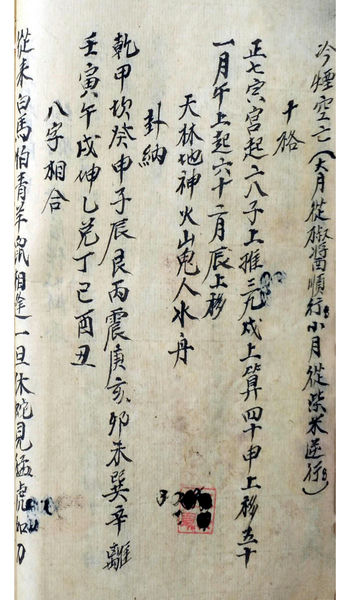 冷煙空亡(大月從椒醬順行 小月從柴米逆行)
十格
正七寅宮起二八子上推三九戌上算四十申上移五十
一月午上起六十二月辰上移
天林地神火山鬼人水丹
卦納
乾甲坎癸申子辰艮丙震庚亥卯未巽辛離
壬寅午戌坤乙兌丁巳酉丑
八字相合
從來白馬怕青羊鼠相逢一旦休蛇見猛虎如刀